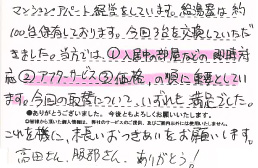 マンション・アパート経営をしています。給湯器は約
100台保有しております。今回3台を交換していただ
きました。当方では、①入居中の部屋などの即時対
応②アフターサービス③価格、の順に重要としてい
ます。今回の取替について、いずれも満足でした。
●ありがとうございました。今後ともよろしくお願いいたします。
これを機に、末長いおつきあいをお願いします。
高田さん、服部さん ありがとう!